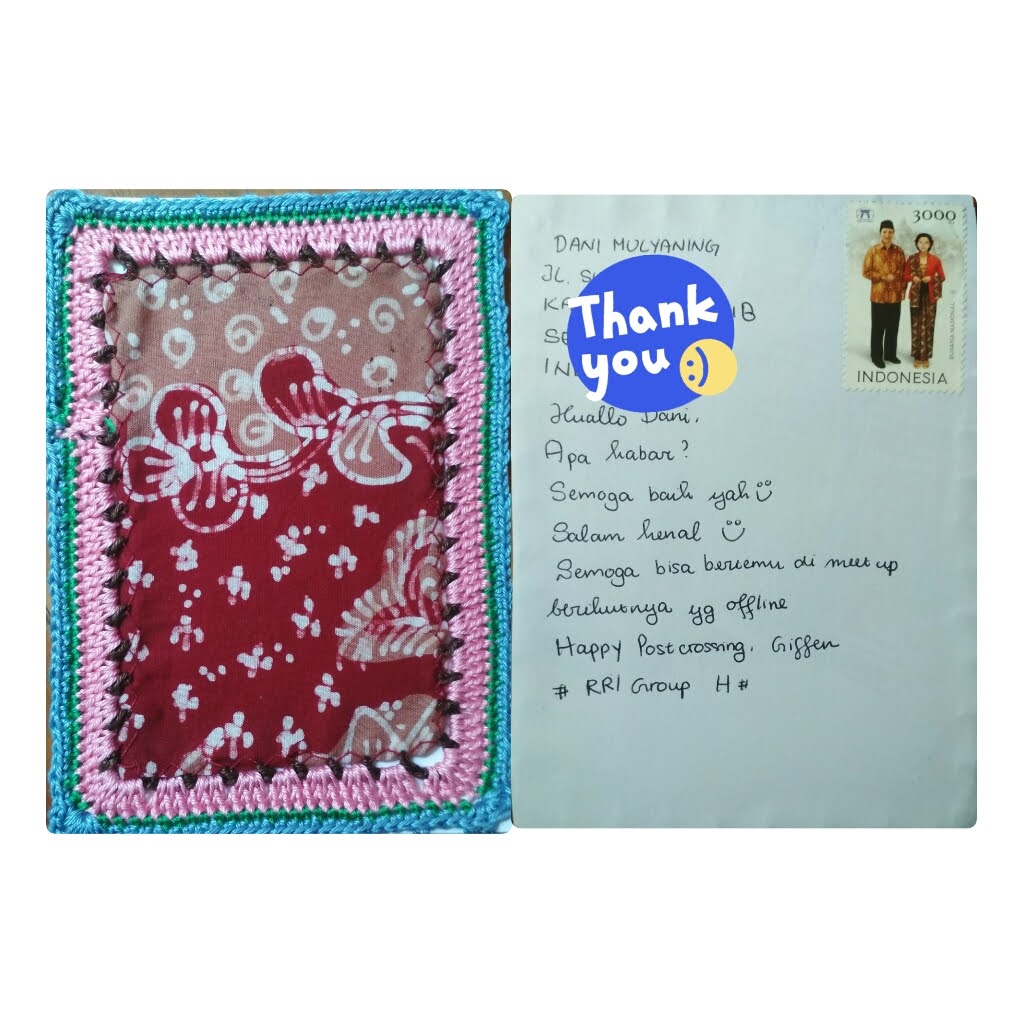 DANI MULYANING
JL.
IB
Thank
you
3000
BUSANA NASIONAL
INDONESIA
Huallo Dani,
Apa kabar?
Semoga baik yah
Salam kenal
Semoga bisa bertemu di meet up
berikutnya yg offline
Happy Postcrossing. Giffen
# RRI Group H #